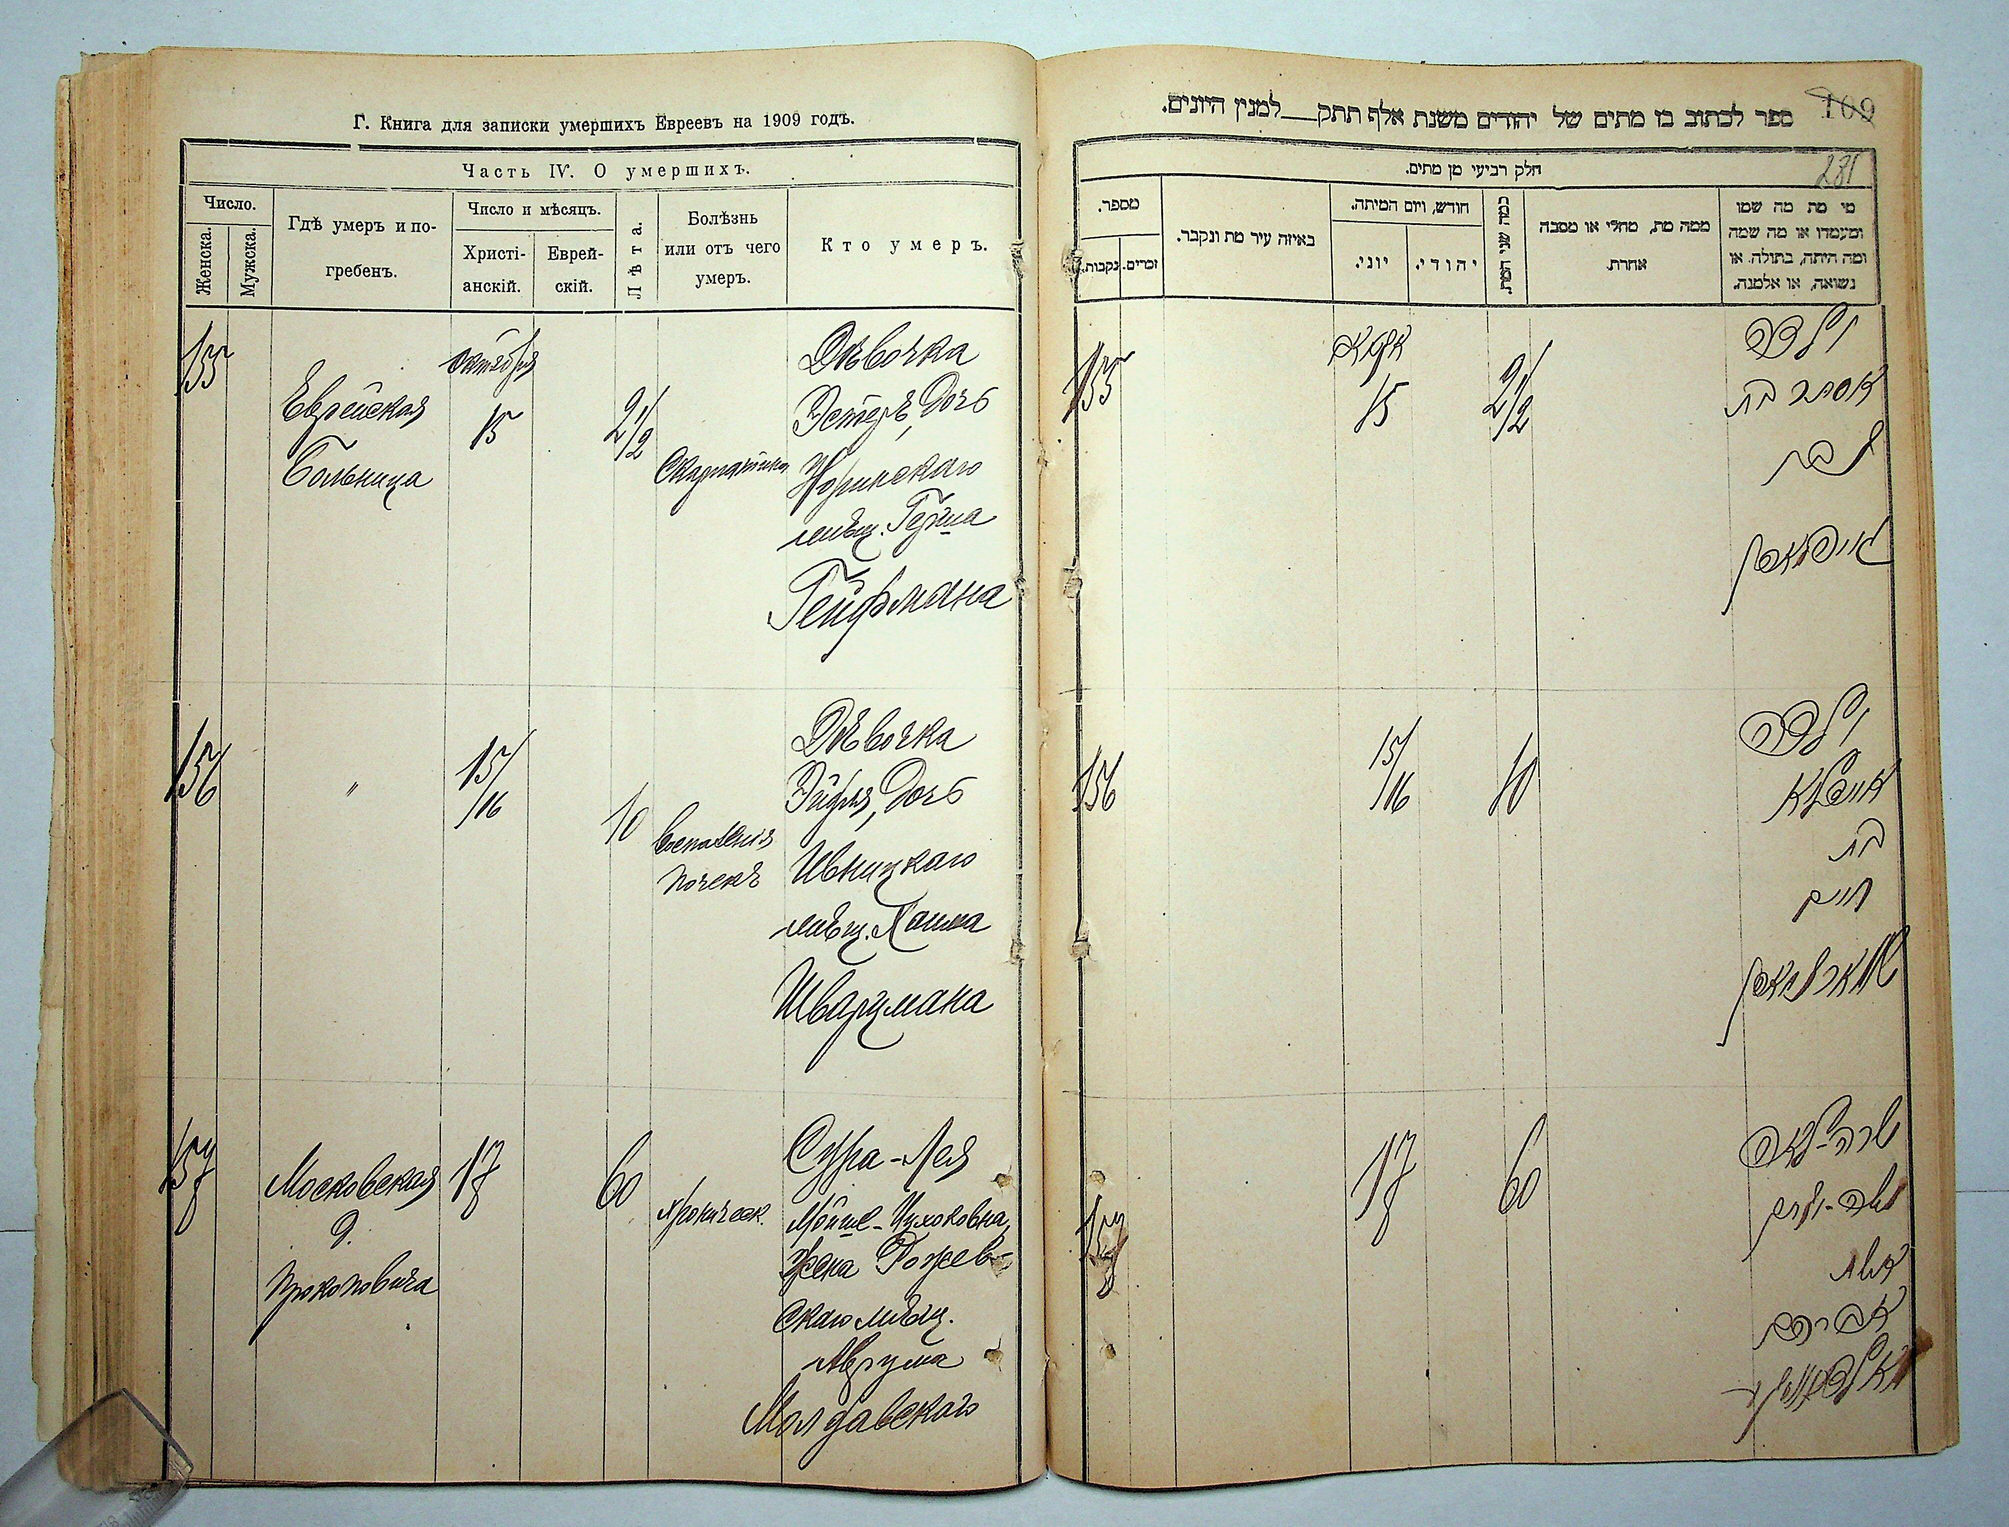 Г. Книга для записки умершихъ Евреевъ на 1909 годъ.
Часть IV. О умершихъ.
Число.
Женска.
Мужска.
Гдѣ умеръ и по-
гребенъ.
Число и мѣсяцъ.
Христі-
анскій.
Еврей-
скій.
Лѣта.
Болѣзнь
или отъ чего
умеръ.
Кто умеръ.
155
Еврейская
Больница
октября
15
2 1/2
Скарлатина
Дѣвочка
Эстеръ, дочь
Норинскаго
мѣщ. Герша
Гейфмана
156
"
15/16
10
Воспаленія
почекъ
Дѣвочка
Эйдля, дочь
Ивницкаго
мѣщ. Хаима
Шварцмана
157
Московская
д.
Прокоповича
17
60
Хроническ.
Сура-Лея
Мойше-Ицковна,
Жена Рожев-
скаго мѣщ.
Аврума
Молдавскаго
ספר לכתוב בו מתים של יהודים משנת אלף תתק__למנין היונים.
109
281
חלק רביעי מן מתים.
מי מת מה שמו
ומעמדו או מה שמה
ומה היתה, בתולה או
נשואה, או אלמנה.
ממה מת, מחלי או מסבה
אחרת.
כמה שני המת.
חודש, ויום המיתה.
יהודי.
יוני.
באיזה עיר מת ונקבר.
מספר.
זכרים.
נקבות.
ילדה
אסתר בת
הירש
גייפמאן
2 1/2
15
155
ילדה
איידלא
בת
חיים
שווארצמאן
10
15/16
156
שרה-לאה
משה-
אשת
אברהם
60
17
157